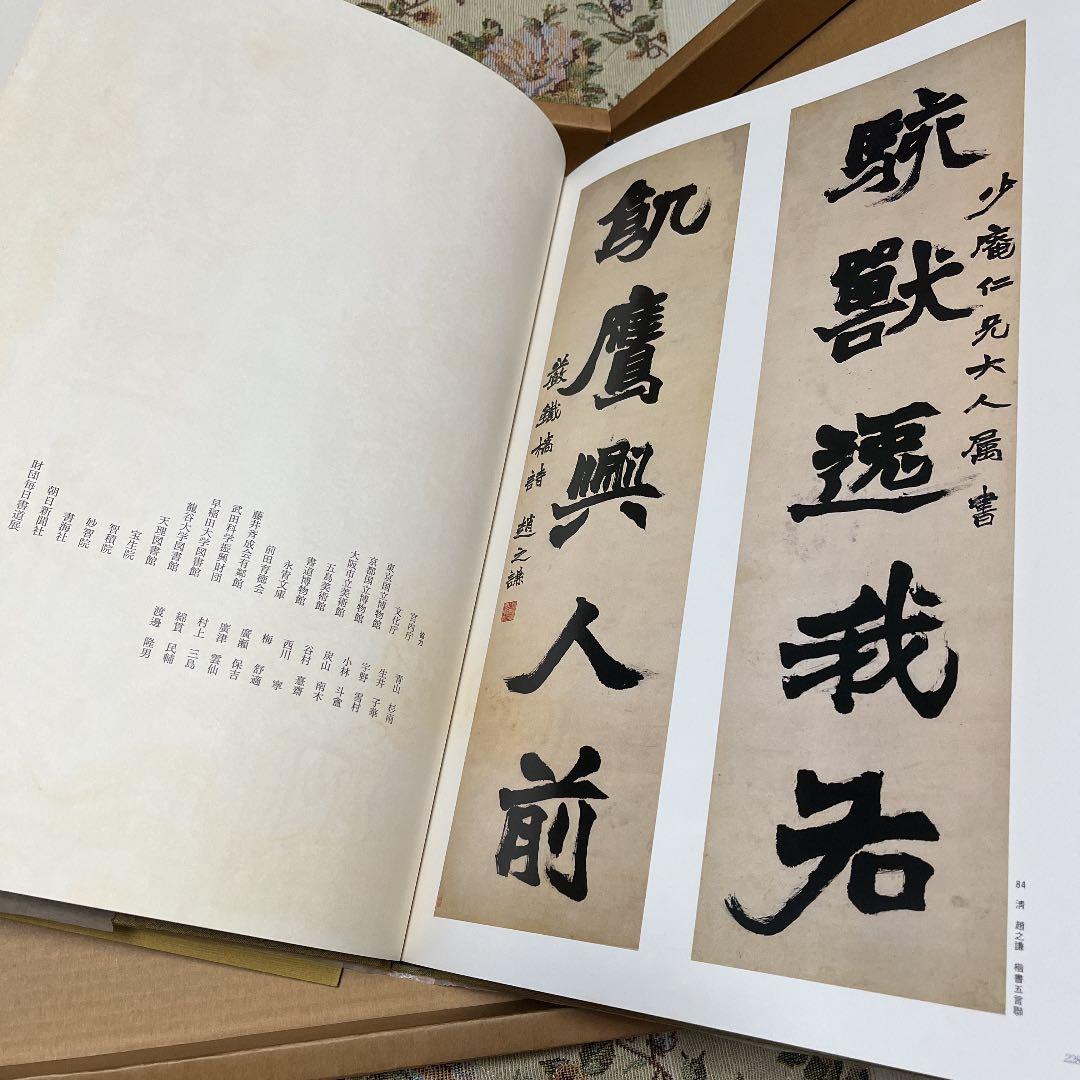 駭獸逸我右
少庵仁兄大人属書
飢鷹興人前
嚴鐵橋詩 趙之謙
84 清 趙之謙 楷書五言聯
協力
宮内庁
文化庁
東京国立博物館
京都国立博物館
大阪市立美術館
五島美術館
書道博物館
永青文庫
前田育徳会
藤井斉成会有鄰館
武田科学振興財団
早稲田大学図書館
龍谷大学図書館
天理図書館
宝生院
智積院
妙智院
書海社
朝日新聞社
財団毎日書道展
青山 杉雨
生井 子華
宇野 雪村
小林 斗盦
炭山 南木
谷村 憙齋
西川 寧
梅 舒適
廣瀬 保吉
廣津 雲仙
村上 三島
綿貫 民輔
渡邊 隆男